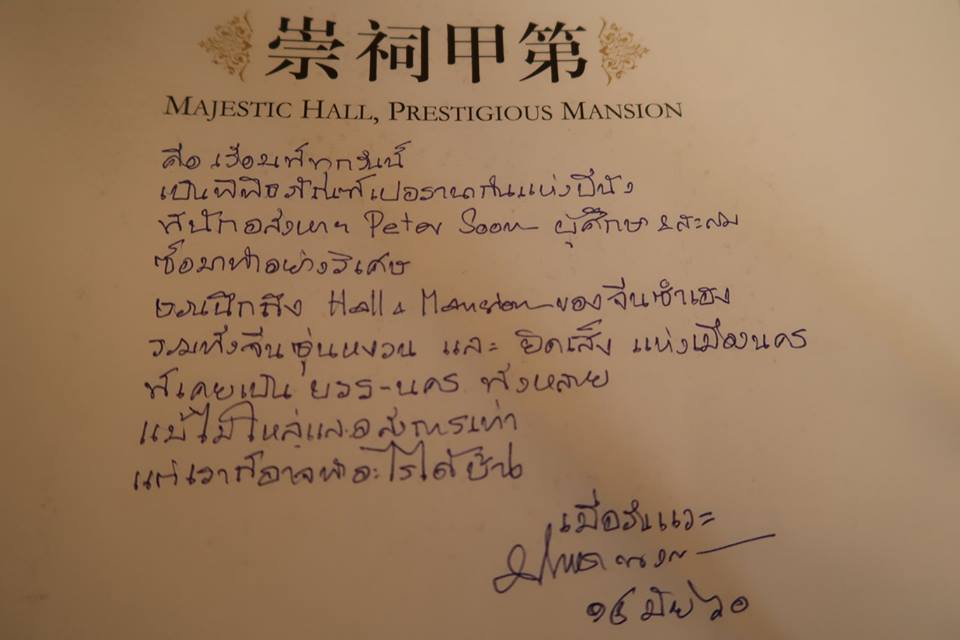 崇祠甲第
MAJESTIC HALL, PRESTIGIOUS MANSION
คือ เรือนที่ทุกวันนี้
เป็นพิพิธภัณฑ์เปอรานากันแห่งปีนัง
ที่นักอสังหาฯ Peter Soon ผู้ศึกษา & สะสม
ซื้อมาทำอย่างวิเศษ
ชวนนึกถึง Hall & Mansion ของจีนซำเฮง
รวมทั้งจีนซุ่นหงวน และ ยิดเส็ง แห่งเมืองนคร
ที่เคยเป็น บวร-นคร ทั้งหลาย
แม้ไม่ใหญ่และอลังการเท่า
แต่เราก็อาจทำอะไรได้บ้าง
เมื่อวันแวะ
๑๕ มีย ๖๐